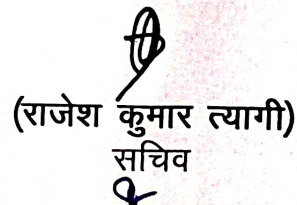 (राजेश कुमार त्यागी)
सचिव